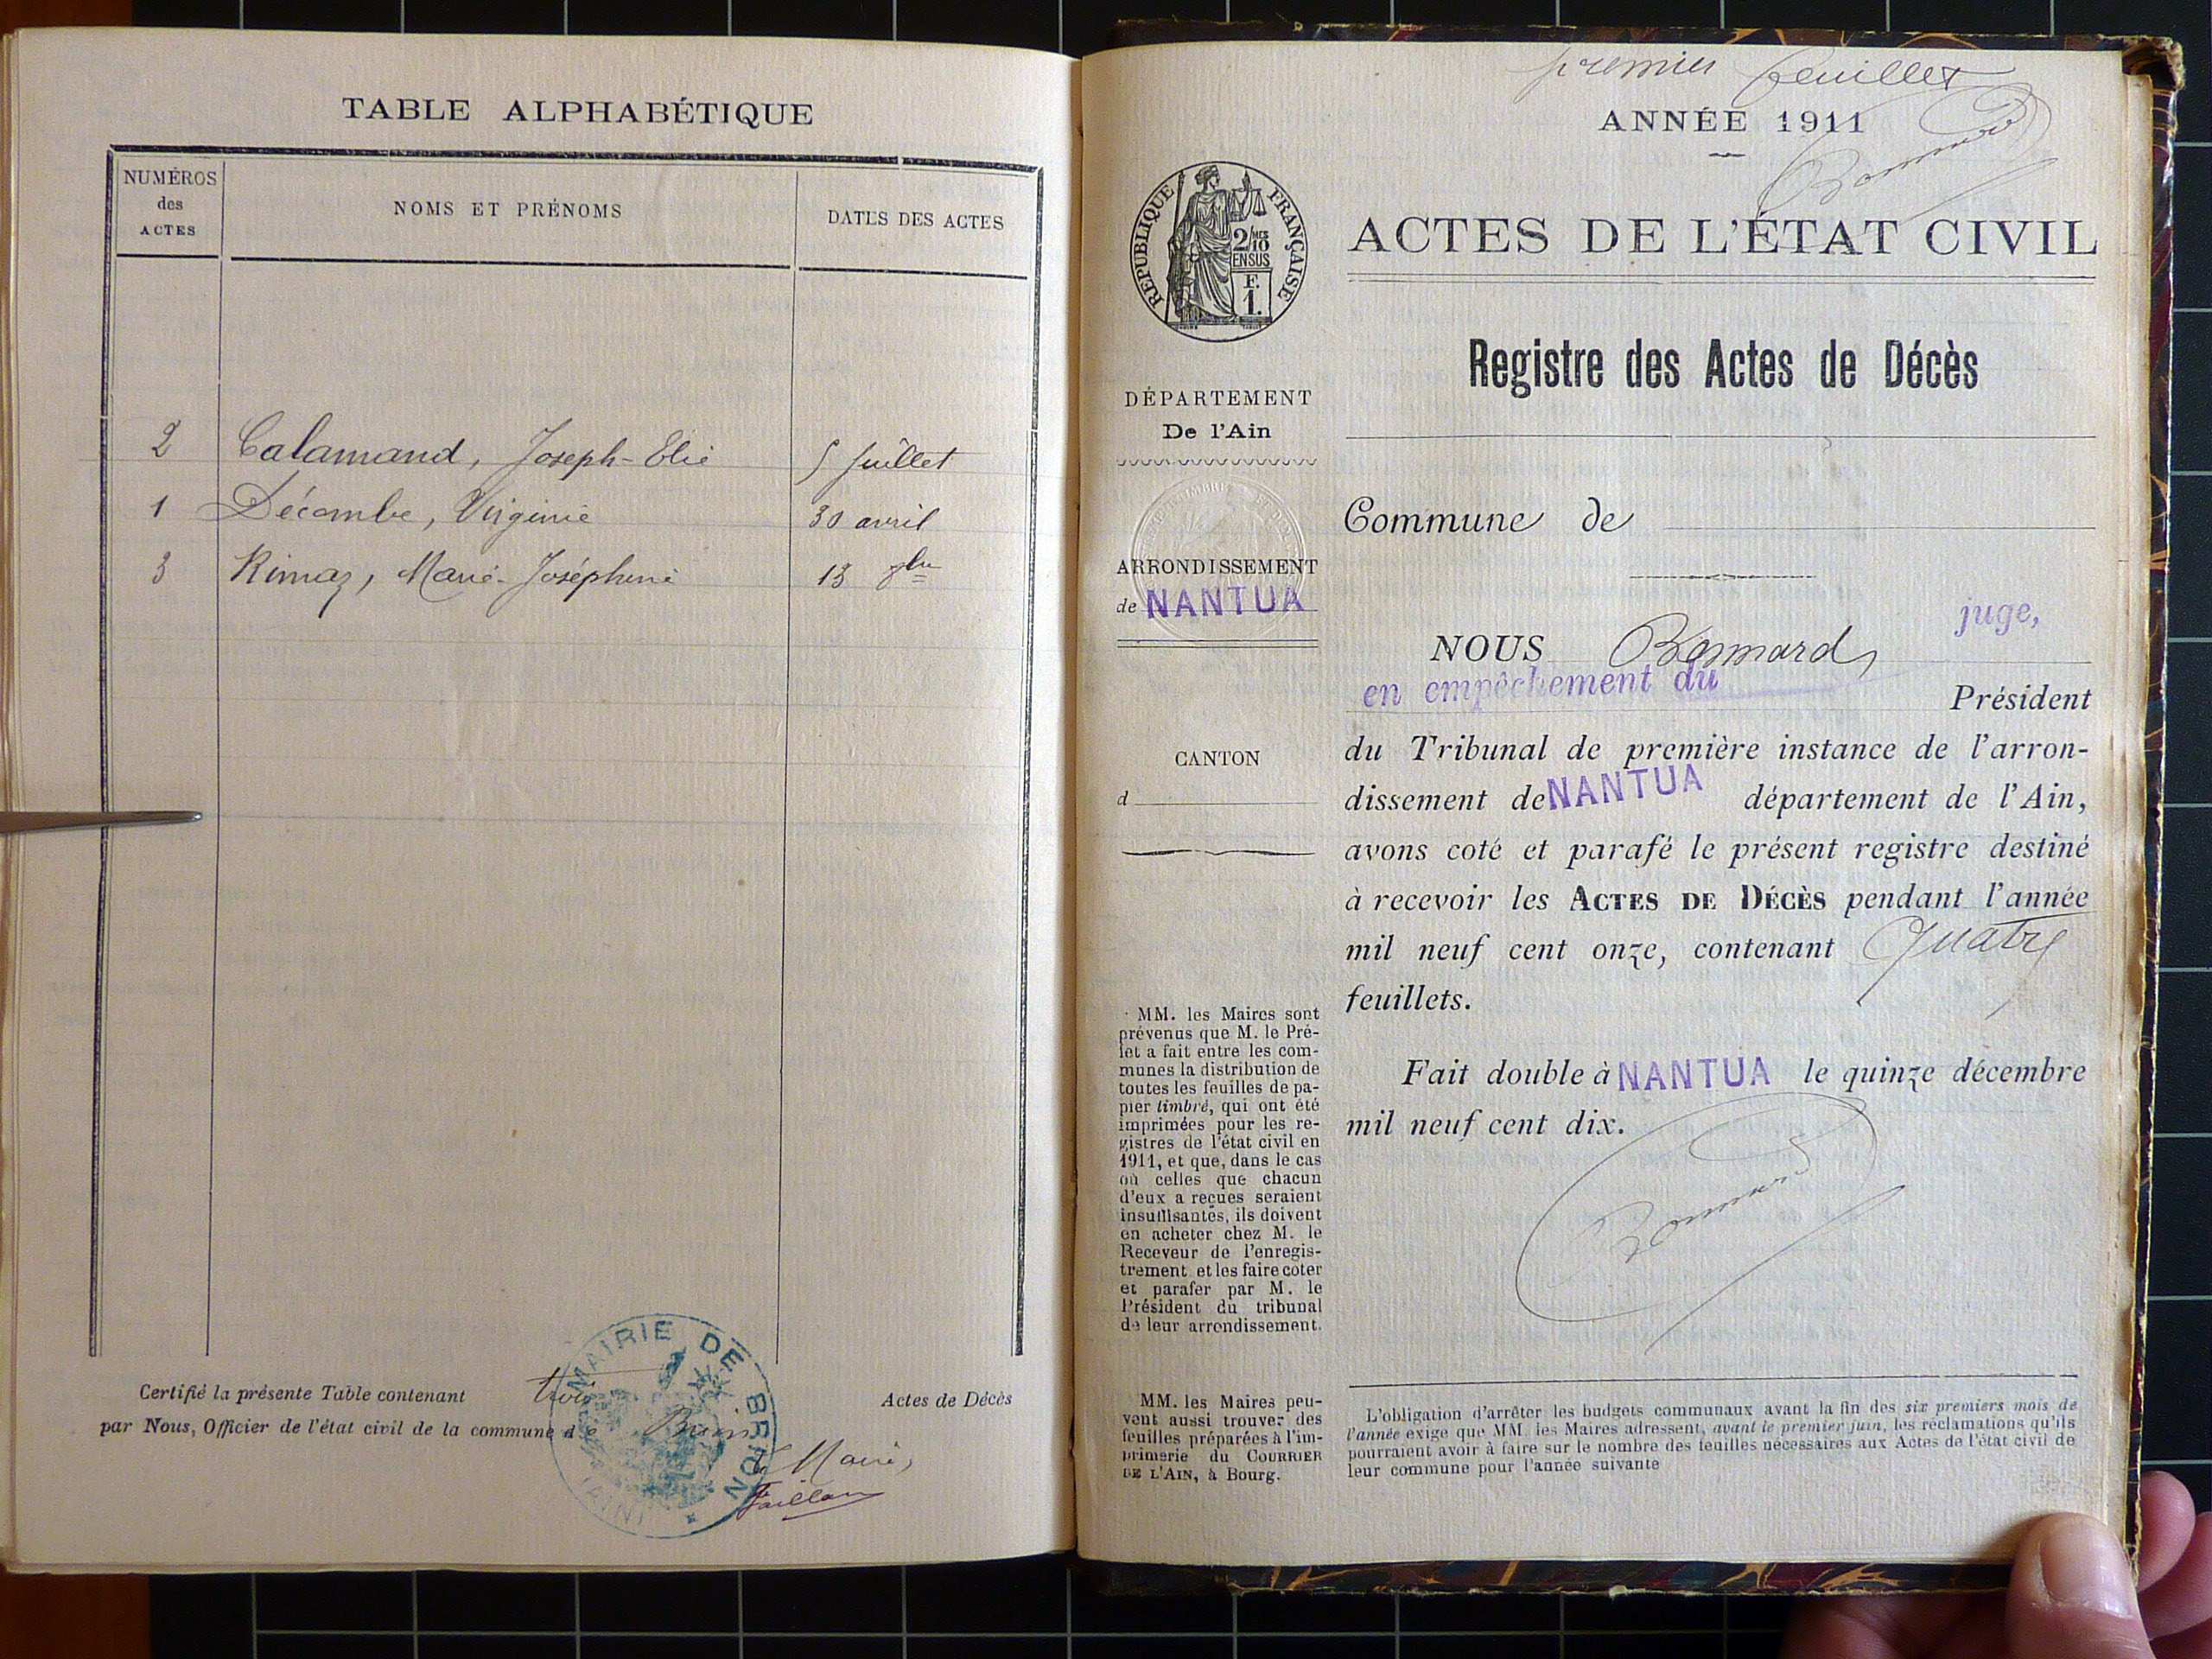 TABLE ALPHABÉTIQUE
NUMÉROS
des
ACTES
NOMS ET PRÉNOMS
DATES DES ACTES
2 Calamand, Joseph-Elie 5 Juillet
1 Décombe, Virginie 30 avril
3 Rimaz, Marie-Joséphine 13 8bre
Certifié la présente Table contenant trois Actes de Décès
par Nous, Officier de l'état civil de la commune de
Le Maire,
MAIRIE DE BRION
(AIN)
premier feuillet
ANNÉE 1911
RÉPUBLIQUE FRANÇAISE
2/10
EN SUS
F.
1.
ACTES DE L'ÉTAT CIVIL
Registre des Actes de Décès
DÉPARTEMENT
De l'Ain
ARRONDISSEMENT
de NANTUA
CANTON
d
Commune de
NOUS Bonnard, juge,
en empêchement du Président
du Tribunal de première instance de l'arron-
dissement de NANTUA département de l'Ain,
avons coté et parafé le présent registre destiné
à recevoir les ACTES DE DÉCÈS pendant l'année
mil neuf cent onze, contenant Quatre
feuillets.
Fait double à NANTUA le quinze décembre
mil neuf cent dix.
Bonnard
MM. les Maires sont
prévenus que M. le Pré-
fet a fait entre les com-
munes la distribution de
toutes les feuilles de pa-
pier timbré, qui ont été
imprimées pour les re-
gistres de l'état civil en
1911, et que, dans le cas
où celles que chacun
d'eux a reçues seraient
insuffisantes, ils doivent
en acheter chez M. le
Receveur de l'enregis-
trement et les faire coter
et parafer par M. le
Président du tribunal
de leur arrondissement.
MM. les Maires peu-
vent aussi trouver des
feuilles préparées à l'im-
primerie du COURRIER
DE L'AIN, à Bourg.
L'obligation d'arrêter les budgets communaux avant la fin des six premiers mois de
l'année exige que MM. les Maires adressent, avant le premier juin, les réclamations qu'ils
pourraient avoir à faire sur le nombre des feuilles nécessaires aux Actes de l'état civil de
leur commune pour l'année suivante